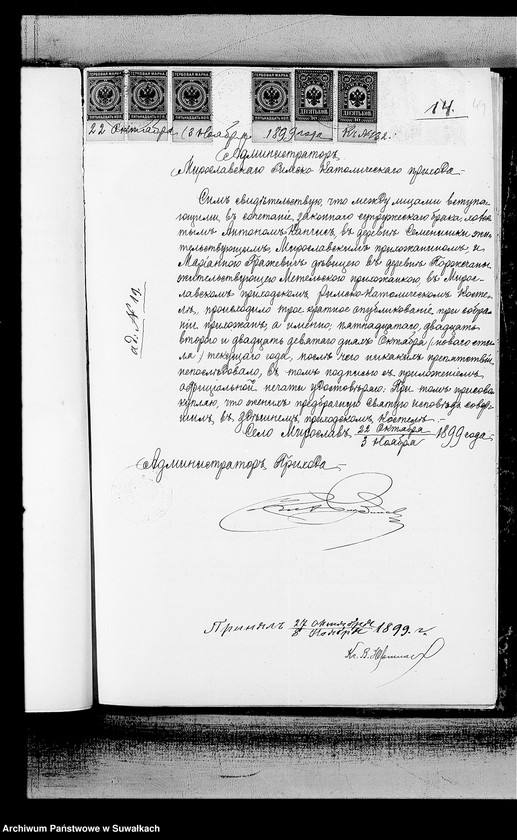 ГЕРБОВАЯ МАРКА ГЕРБОВАЯ МАРКА ГЕРБОВАЯ МАРКА ГЕРБОВАЯ МАРКА
ПЯТНАДЦАТЬ КОП. ПЯТНАДЦАТЬ КОП. ДЕСЯТЬ КОП. ДЕСЯТЬ КОП.
14.
22 Октября (3 Ноября 1899 года
Администраторъ
Мирославскаго Римско-Католическаго прихода.
Симъ свидѣтельствую, что между лицами вступа-
ющими въ сочетаніе законнаго супружескаго брака, холос-
тымъ Антономъ въ деревнѣ жи-
тельствующимъ, Мирославскимъ прихожаниномъ, и
Маріанною дѣвицею въ деревнѣ
жительствующею Метельскою прихожанкою, въ Миро-
славскомъ приходскомъ Римско-Католическомъ Косте-
лѣ, происходило трое-кратное опубликованіе при собра-
ніи прихожанъ, а именно, пятнадцатаго, двадцать
втораго и двадцать девятаго дняхъ Октября (новаго сти-
ля) текущаго года, послѣ чего никакихъ препятствій
непослѣдовало, въ томъ подписью съ приложеніемъ
оффиціальной печати удостовѣряю. При томъ присово-
купляю, что женихъ предбрачную святую исповѣдь совер-
шилъ въ здѣшнемъ приходскомъ Костелѣ.
Село Мирославъ 22 Октября
3 Ноября 1899 года.
ад. № 19
Администраторъ Прихода
Принялъ 27 октября
8 Ноября 1899 г.
Кс. В.
Archiwum Państwowe w Suwałkach